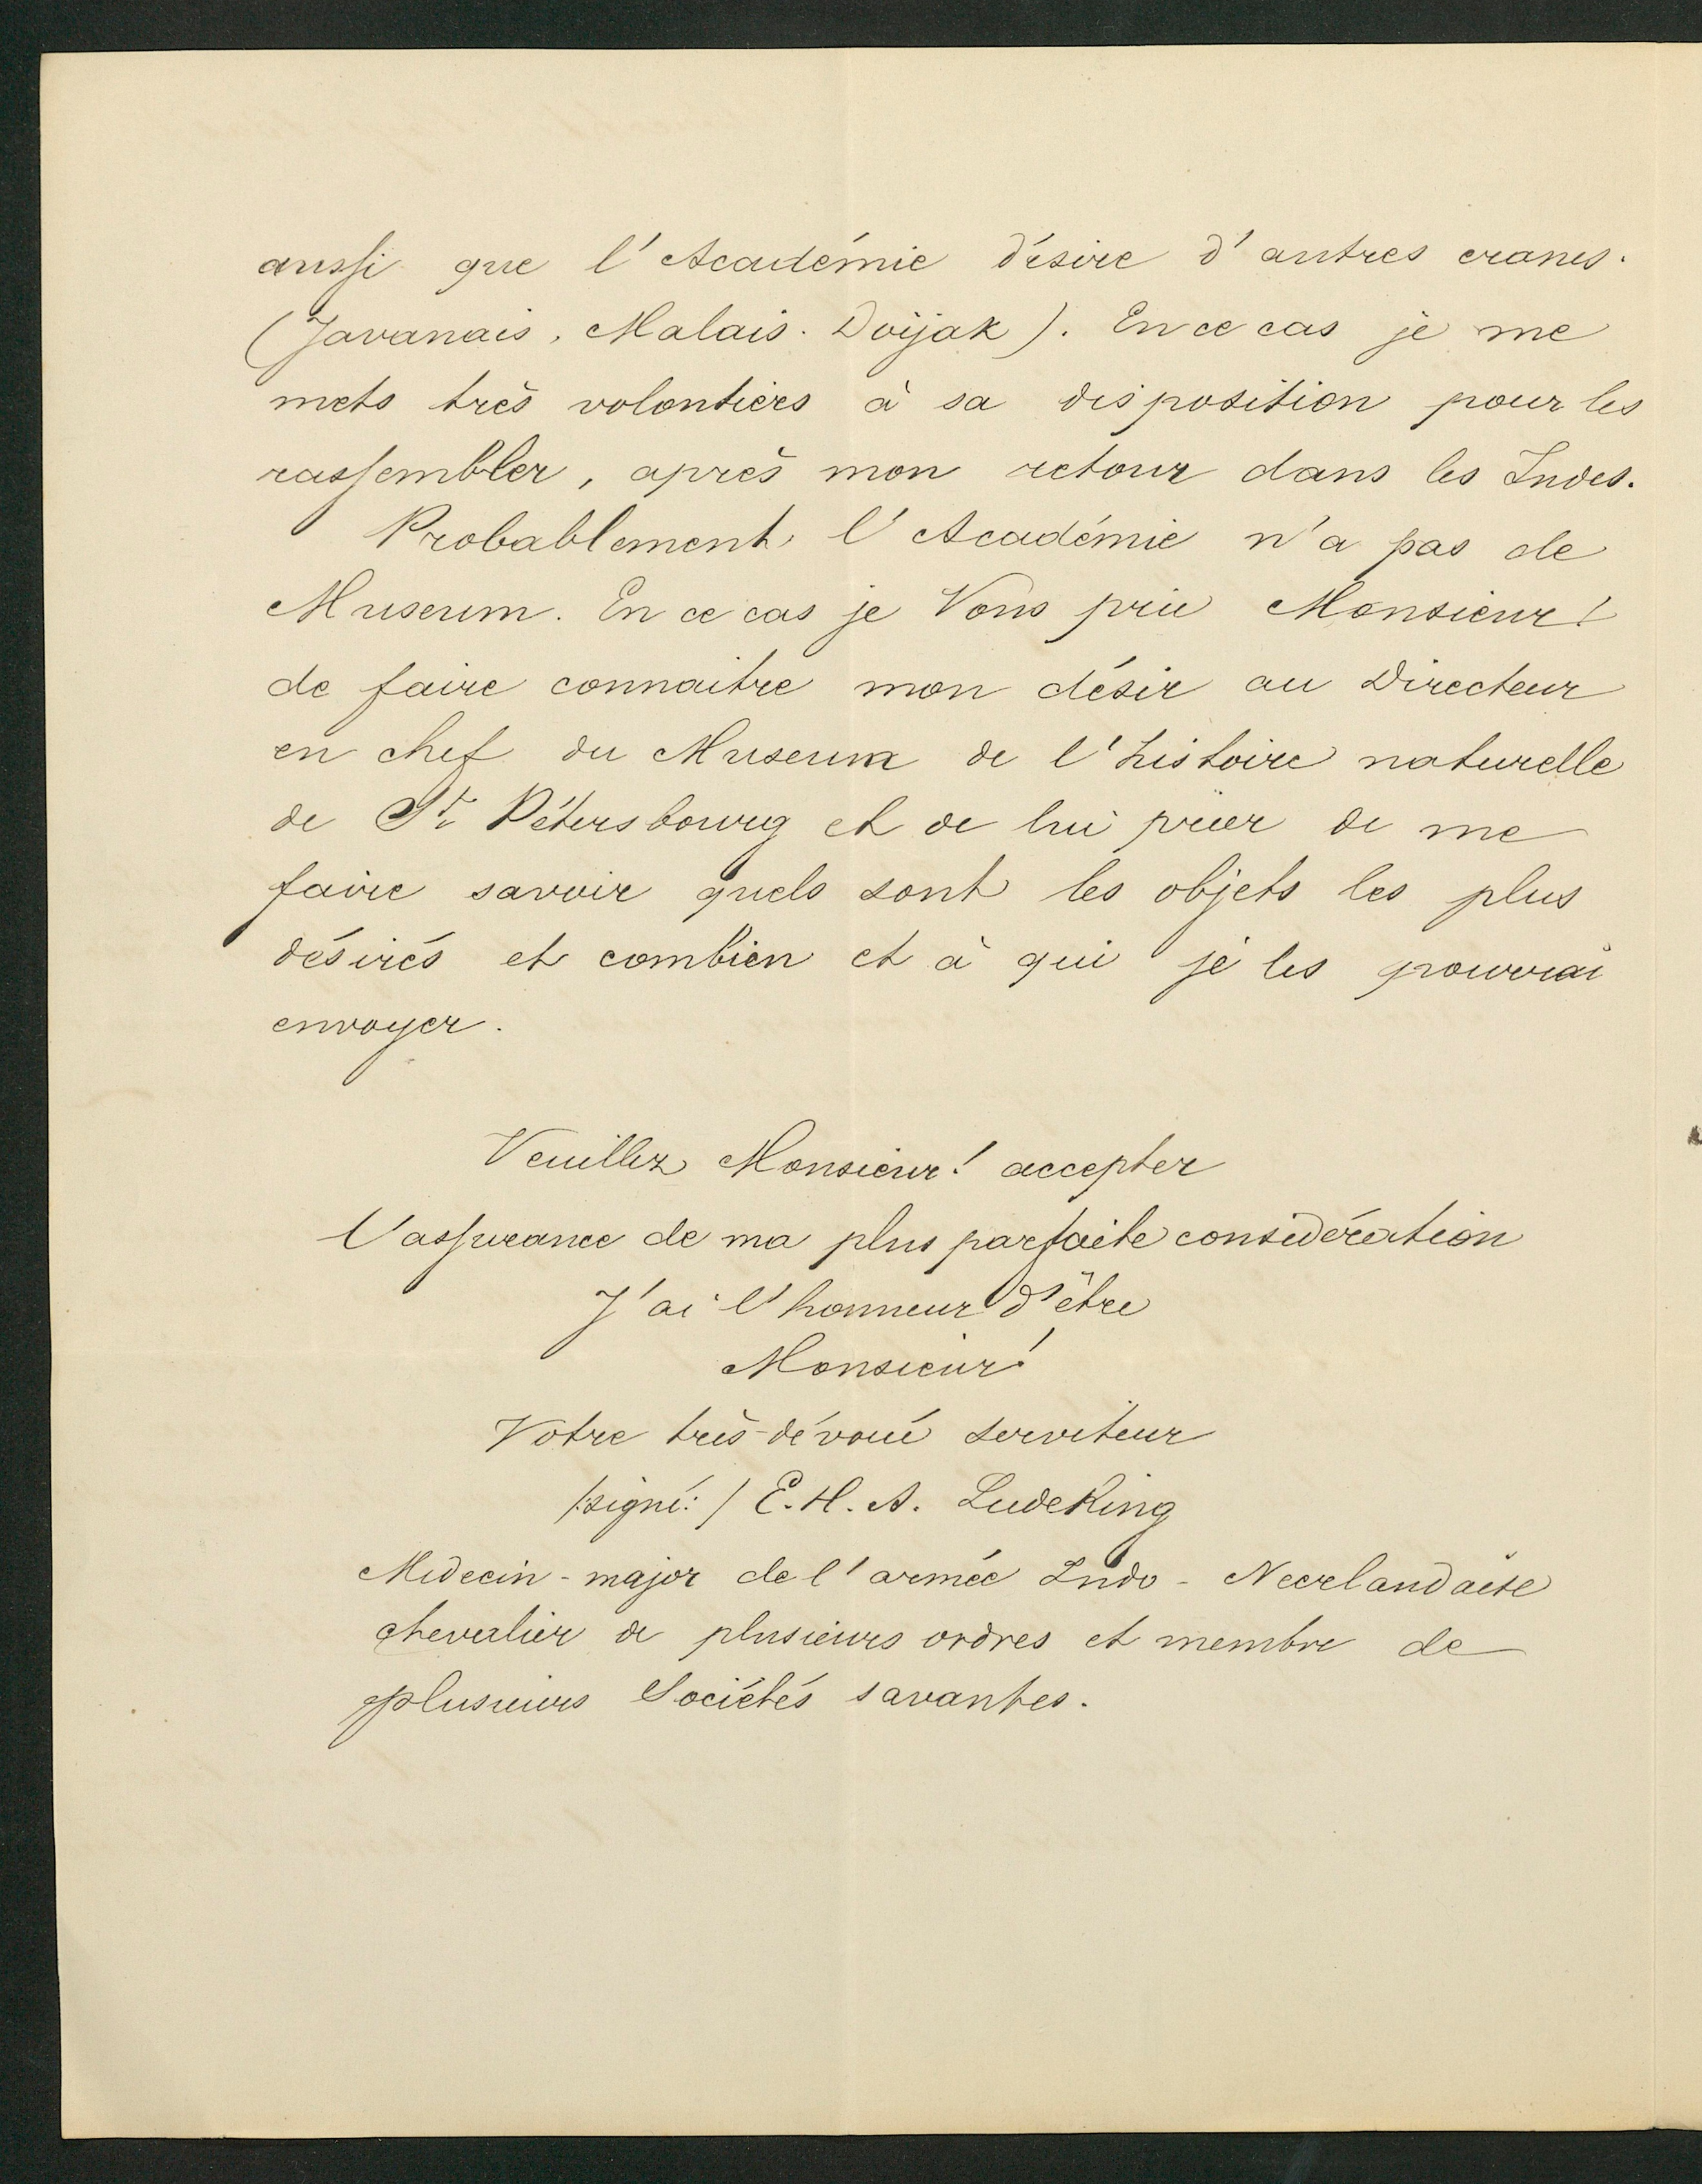 aussi que l'Académie désire d'autres cranes.
(Javanais, Malais. Doijak). En ce cas je me
mets très volontiers à sa disposition pour les
rassembler, après mon retour dans les Indes.
Probablement l'Académie n'a pas de
Museum. En ce cas je Vous prie Monsieur!
de faire connaitre mon désir au Directeur
en chef du Museum de l'histoire naturelle
de St. Pétersbourg et de lui prier de me
faire savoir quels sont les objets les plus
désirés et combien et à qui je les pourrai
envoyer.
Veuillez Monsieur! accepter
l'assurance de ma plus parfaite considération
J'ai l'honneur d'être
Monsieur!
Votre très-dévoué serviteur
/:signé:/ E. H. A. Ludeking
Medecin-major de l'armée Indo-Neerlandaise
chevalier de plusieurs ordres et membre de
plusieurs Sociétés savantes.